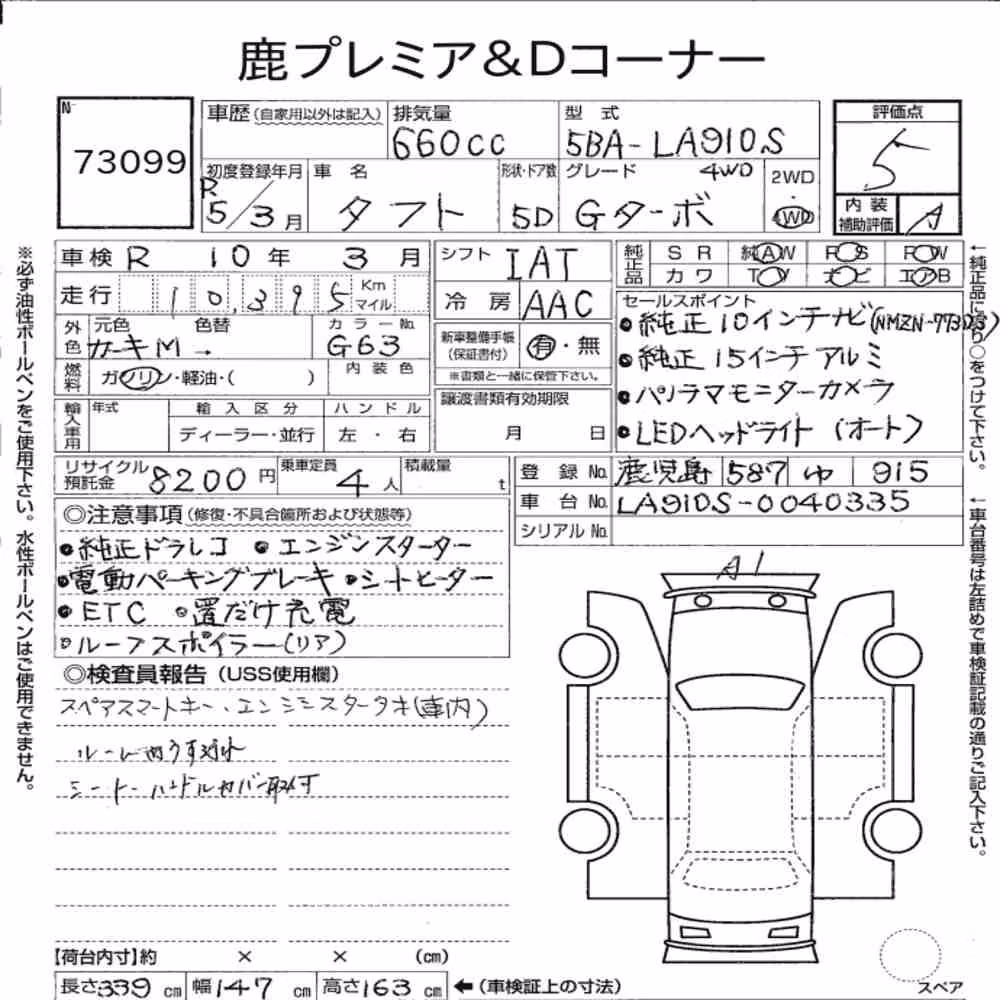 鹿プレミア&Dコーナー
No
73099
車歴 (自家用以外は記入)
排気量
660cc
型式
5BA-LA910S
初度登録年月
R5/3月
車名
タフト
形状・ドア数
5D
グレード
4WD
Gターボ
2WD
4WD
評価点
5
内装補助評価
A
車検 R 10年 3月
走行 10,395 Km マイル
外色
元色
色替
カーキM →
カラーNo.
G63
燃料
ガソリン・軽油・( )
内装色
輸入車用
年式
輸入区分
ディーラー・並行
ハンドル
左・右
シフト
IAT
冷房
AAC
新車整備手帳
(保証書付)
有・無
※書類と一緒に保管下さい。
譲渡書類有効期限
月 日
純正品
SR 純AW PS PW
カワ TV ナビ エアB
セールスポイント
●純正10インチナビ(NMZN-
●純正15インチアルミ
●パノラマモニターカメラ
●LEDヘッドライト(オート)
リサイクル預託金
8200円
乗車定員
4人
積載量
t
登録No.
鹿児島 587 ゆ 915
車台No.
LA910S-0040335
シリアルNo.
◎注意事項(修復・不具合箇所および状態等)
●純正ドラレコ ●エンジンスターター
●電動パーキングブレーキ ●シートヒーター
●ETC ●置だけ充電
●ルーフスポイラー(リア)
◎検査員報告(USS使用欄)
スペアスマートキー、エンジンスターターキ(車内)
ルーム内うす汚れ
シート・ハンドルカバー取付
A1
【荷台内寸】約 × × (cm)
長さ339cm 幅147cm 高さ163cm ←(車検証上の寸法)
スペア
※必ず油性ボールペンをご使用下さい。水性ボールペンはご使用できません。
←純正品に限り○をつけて下さい。
←車台番号は左詰めで車検証記載の通りご記入下さい。